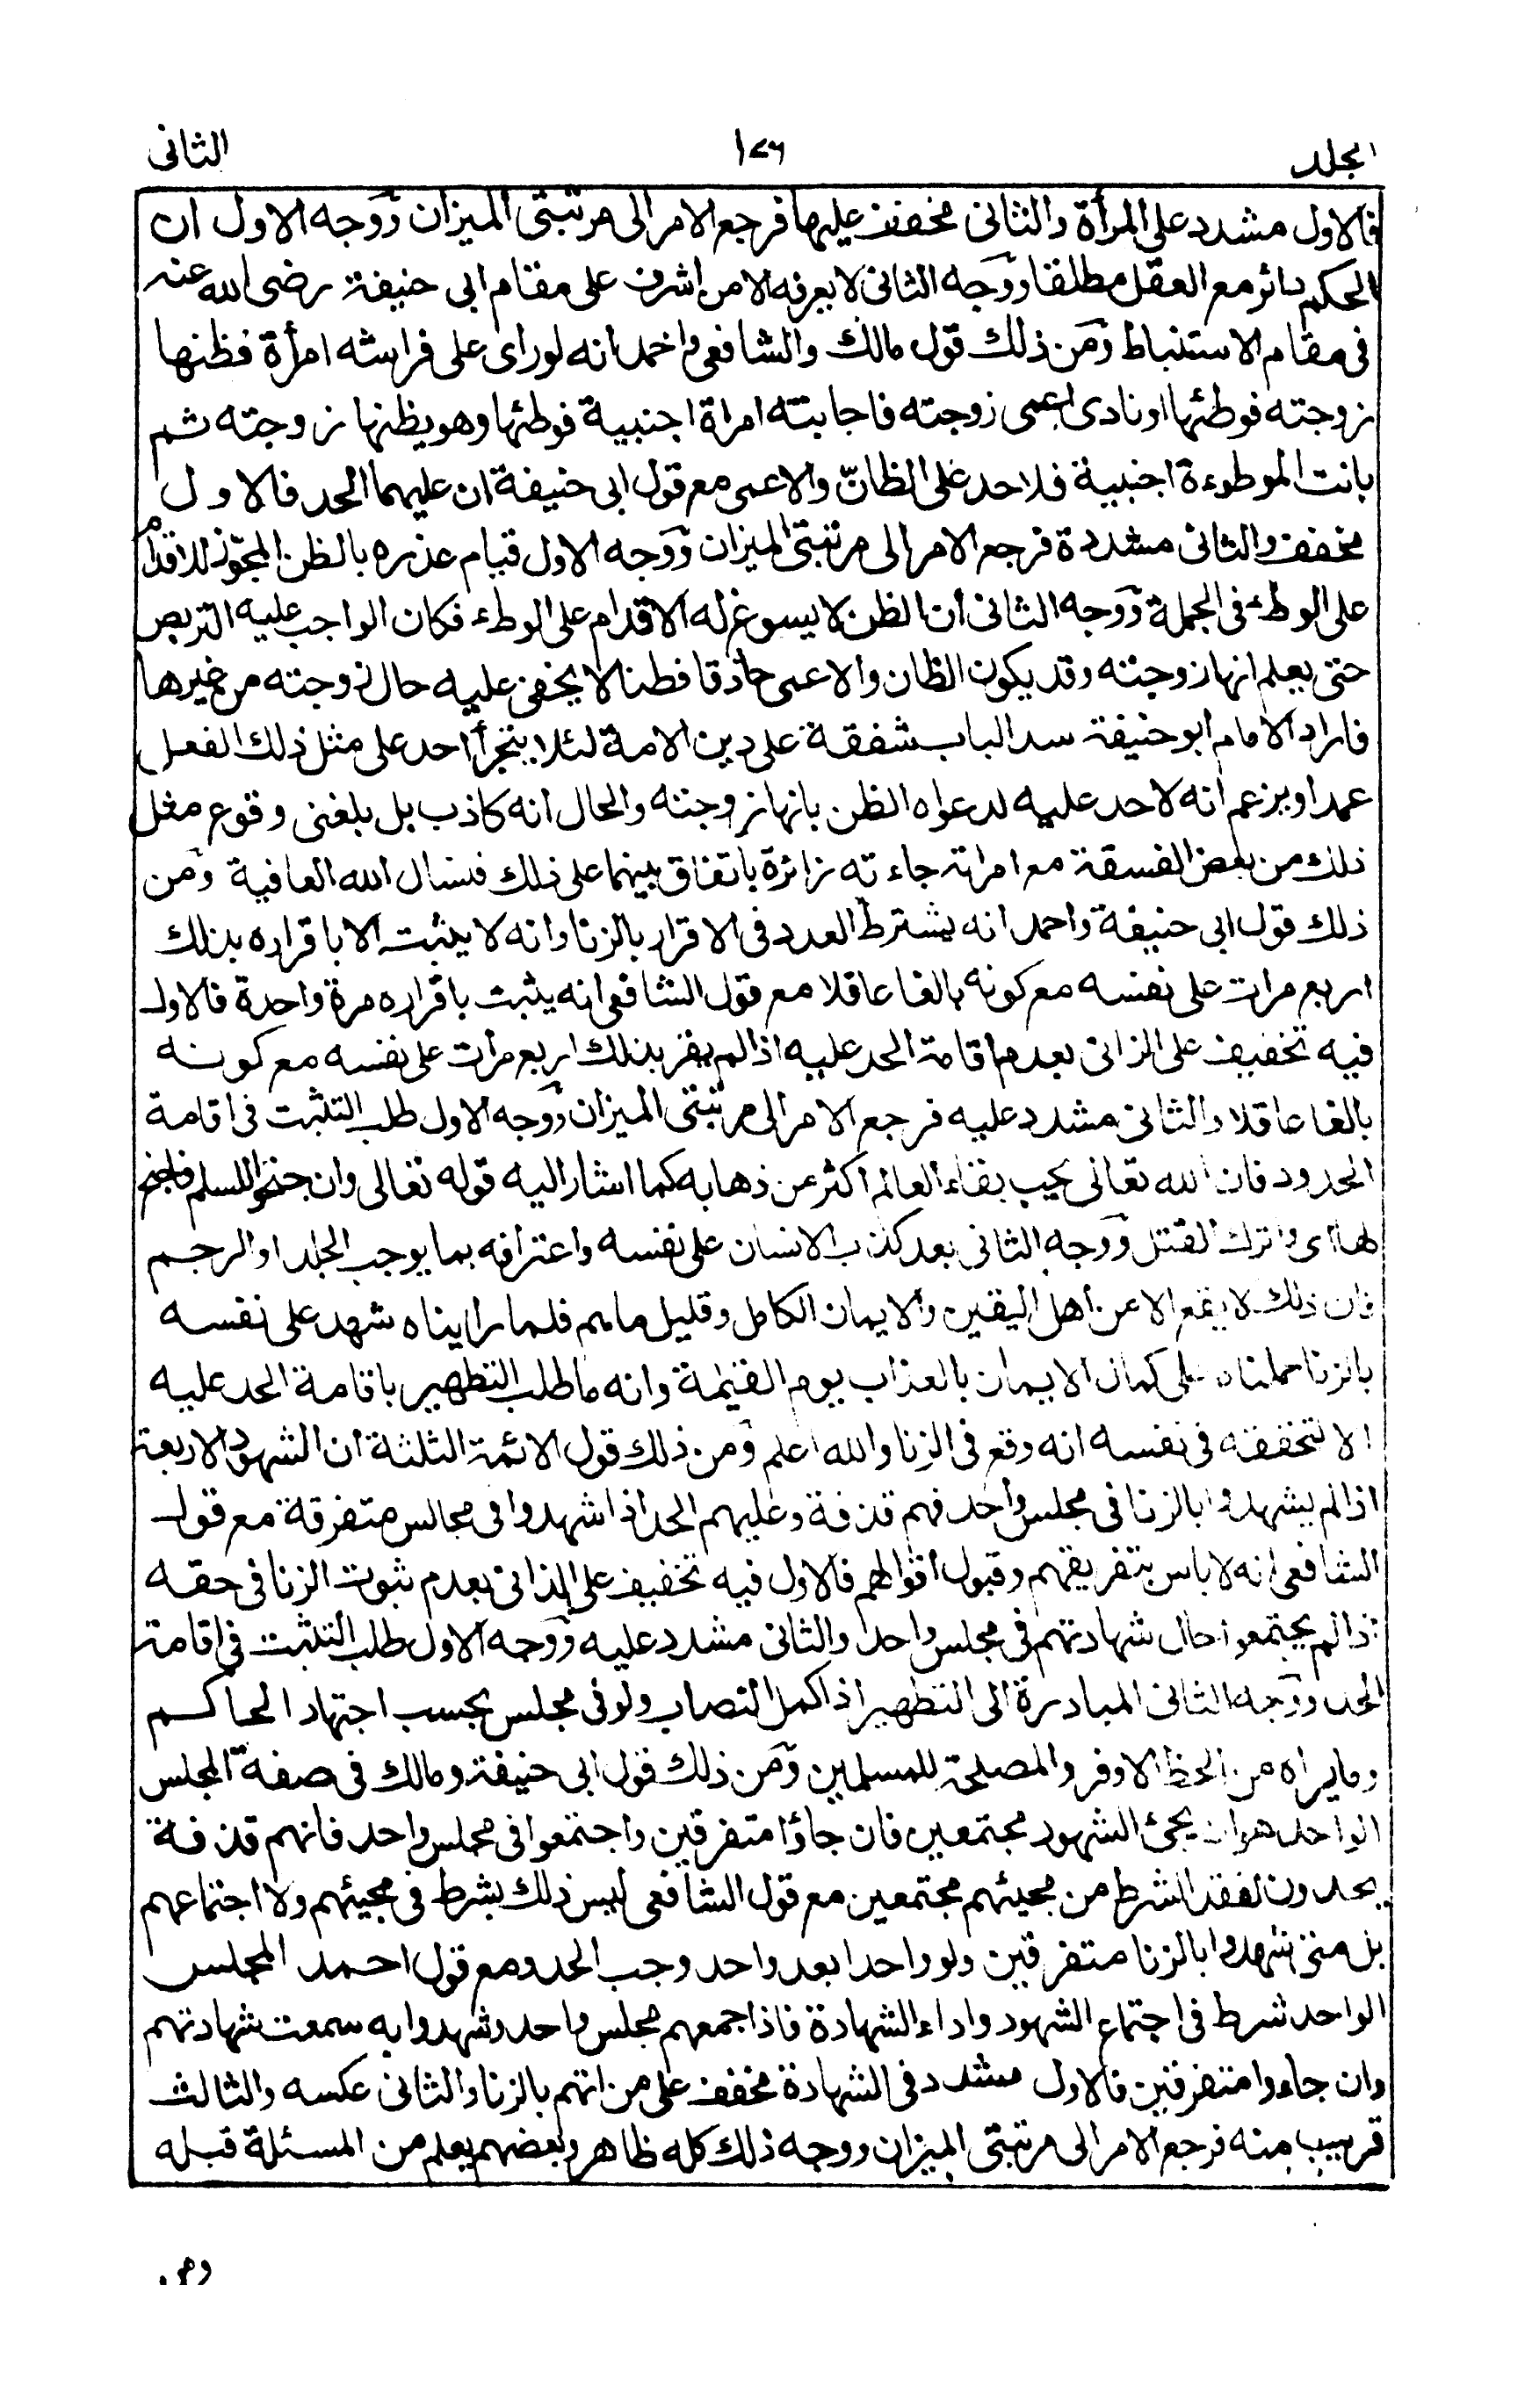 الجلد ١٧٦ الثانى
فالاول مشدد على المرأة والثانى مخفف عليها فرجع الامر الى مرتبتى الميزان ووجه الاول ان
الحكم دائر مع العقل مطلقا ووجه الثانى لا يعرفه الا من اشرف على مقام ابى حنيفة رضى الله عنه
فى مقام الاستنباط ومن ذلك قول مالك والشافعى واحمد انه لو راى على فراشه امرأة فظنها
زوجته فوطئها او نادى اعمى زوجته فاجابته امراة اجنبية فوطئها وهو يظنها زوجته ثم
بانت الموطوءة اجنبية فلا حد على الظانّ والاعمى مع قول ابى حنيفة ان عليهما الحد فالاول
مخفف والثانى مشددة فرجع الامر الى مرتبتى الميزان ووجه الاول قيام عذره بالظن المجوّز للاقدام
على الوطء فى الجملة ووجه الثانى ان الظن لا يسوغ له الاقدام على الوطء فكان الواجب عليه التربص
حتى يعلم انها زوجته وقد يكون الظان والاعمى حاذقا فطنا لا يخفى عليه حال زوجته من غيرها
فاراد الامام ابو حنيفة سد الباب شفقة على دين الامة لئلا يتجرأ احد على مثل ذلك الفعل
عمدا ويزعم انه لا حد عليه لدعواه الظن بانها زوجته والحال انه كاذب بل بلغنى وقوع مثل
ذلك من بعض الفسقة مع امراته جاءته زائرة باتفاق بينهما على ذلك فنسال الله العافية ومن
ذلك قول ابى حنيفة واحمد انه يشترط العدد فى الاقرار بالزنا وانه لا يثبت الا باقراره بذلك
اربع مرات على نفسه مع كونه بالغا عاقلا مع قول الشافعى انه يثبت باقراره مرة واحدة فالاول
فيه تخفيف على الزانى بعدم اقامة الحد عليه اذا لم يقر بذلك اربع مرات على نفسه مع كونه
بالغا عاقلا والثانى مشدد عليه فرجع الامر الى مرتبتى الميزان ووجه الاول طلب التثبت فى اقامة
الحدود فان الله تعالى يحب بقاء العالم اكثر من ذهابه كما اشار اليه قوله تعالى وان جنحوا للسلم فاجنح
لها اى واترك القتل ووجه الثانى بعد كذب الانسان على نفسه واعترافه بما يوجب الجلد او الرجم
فان ذلك لا يقع الا عن اهل اليقين والايمان الكامل وقليل ما هم فلما رايناه شهد على نفسه
بالزنا حملناه على كمال الايمان بالعذاب يوم القيمة وانه ما طلب التطهير باقامة الحد عليه
الا لتحققه فى نفسه انه وقع فى الزنا والله اعلم ومن ذلك قول الائمة الثلثة ان الشهود الاربعة
اذا لم يشهدوا بالزنا فى مجلس واحد فهم قذفة وعليهم الحد اذا شهدوا فى مجالس متفرقة مع قول
الشافعى انه لا باس بتفريقهم وقبول اقوالهم فالاول فيه تخفيف على الزانى بعدم ثبوت الزنا فى حقه
اذا لم يجتمعوا حال شهادتهم فى مجلس واحد والثانى مشدد عليه ووجه الاول طلب التثبت فى اقامة
الحد ووجه الثانى المبادرة الى التطهير اذا كمل النصاب ولو فى مجلس بحسب اجتهاد الحاكم
وما يراه من الحظ الاوفر والمصلحة للمسلمين ومن ذلك قول ابى حنيفة ومالك فى صفة المجلس
الواحد هو ان يجئ الشهود مجتمعين فان جاؤا متفرقين واجتمعوا فى مجلس واحد فانهم قذفة
يحدون لفقد الشرط من مجيئهم مجتمعين مع قول الشافعى ليس ذلك بشرط فى مجيئهم ولا اجتماعهم
بل متى شهدوا بالزنا متفرقين ولو واحدا بعد واحد وجب الحد ومع قول احمد المجلس
الواحد شرط فى اجتماع الشهود واداء الشهادة فاذا جمعهم مجلس واحد وشهدوا به سمعت شهادتهم
وان جاءوا متفرقين فالاول مشدد فى الشهادة مخفف على من اتهم بالزنا والثانى عكسه والثالث
قريب منه فرجع الامر الى مرتبتى الميزان ووجه ذلك كله ظاهر وبعضهم يعلم من المسئلة قبله